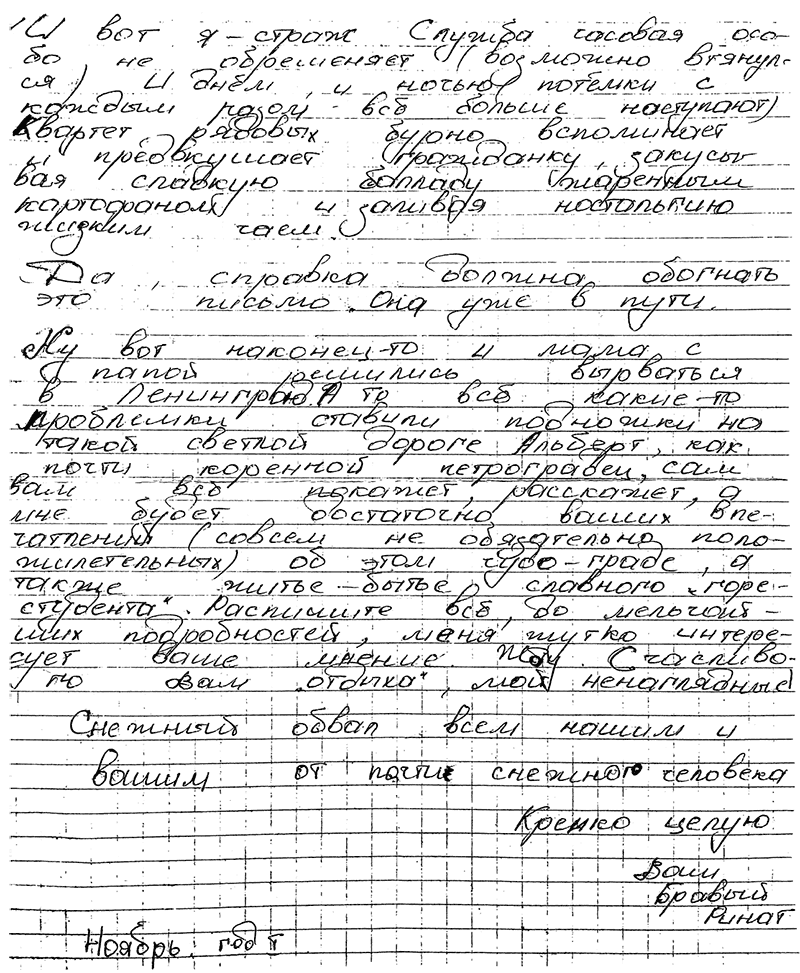 И вот я – страж Служба часовая осо-
бо не обременяет (возможно втянул-
ся) И днём, и ночью (потёмки с
каждым разом - всё больше наступают)
Квартет рядовых бурно вспоминает
и предвкушает гражданку, закусы-
вая сладкую балладу жаренным
картофаном и заливая ностальгию
жидким чаем.
Да, справка должна обогнать
это письмо. Она уже в пути.
Ну вот наконец-то и мама с
папой решились вырваться
в Ленинград А то всё какие-то
проблемки ставили подножки на
такой светлой дороге Альберт, как
почти коренной петроградец, сам
вам всё покажет, расскажет, а
мне будет достаточно ваших впе-
чатлений (совсем не обязательно поло-
жилетельных) об этом чудо-граде, а
также житье-бытье славного „горе-
студента“. Распишите всё, до мельчай-
ших подробностей, меня жутко интере-
сует ваше мнение. Жду. Счасливо-
го вам „отдыха“, мои ненаглядные
Снежный обвал всем нашим и
вашим от почти снежного человека
Крепко целую
Ваш
Бравый
Ринат
Ноябрь. год